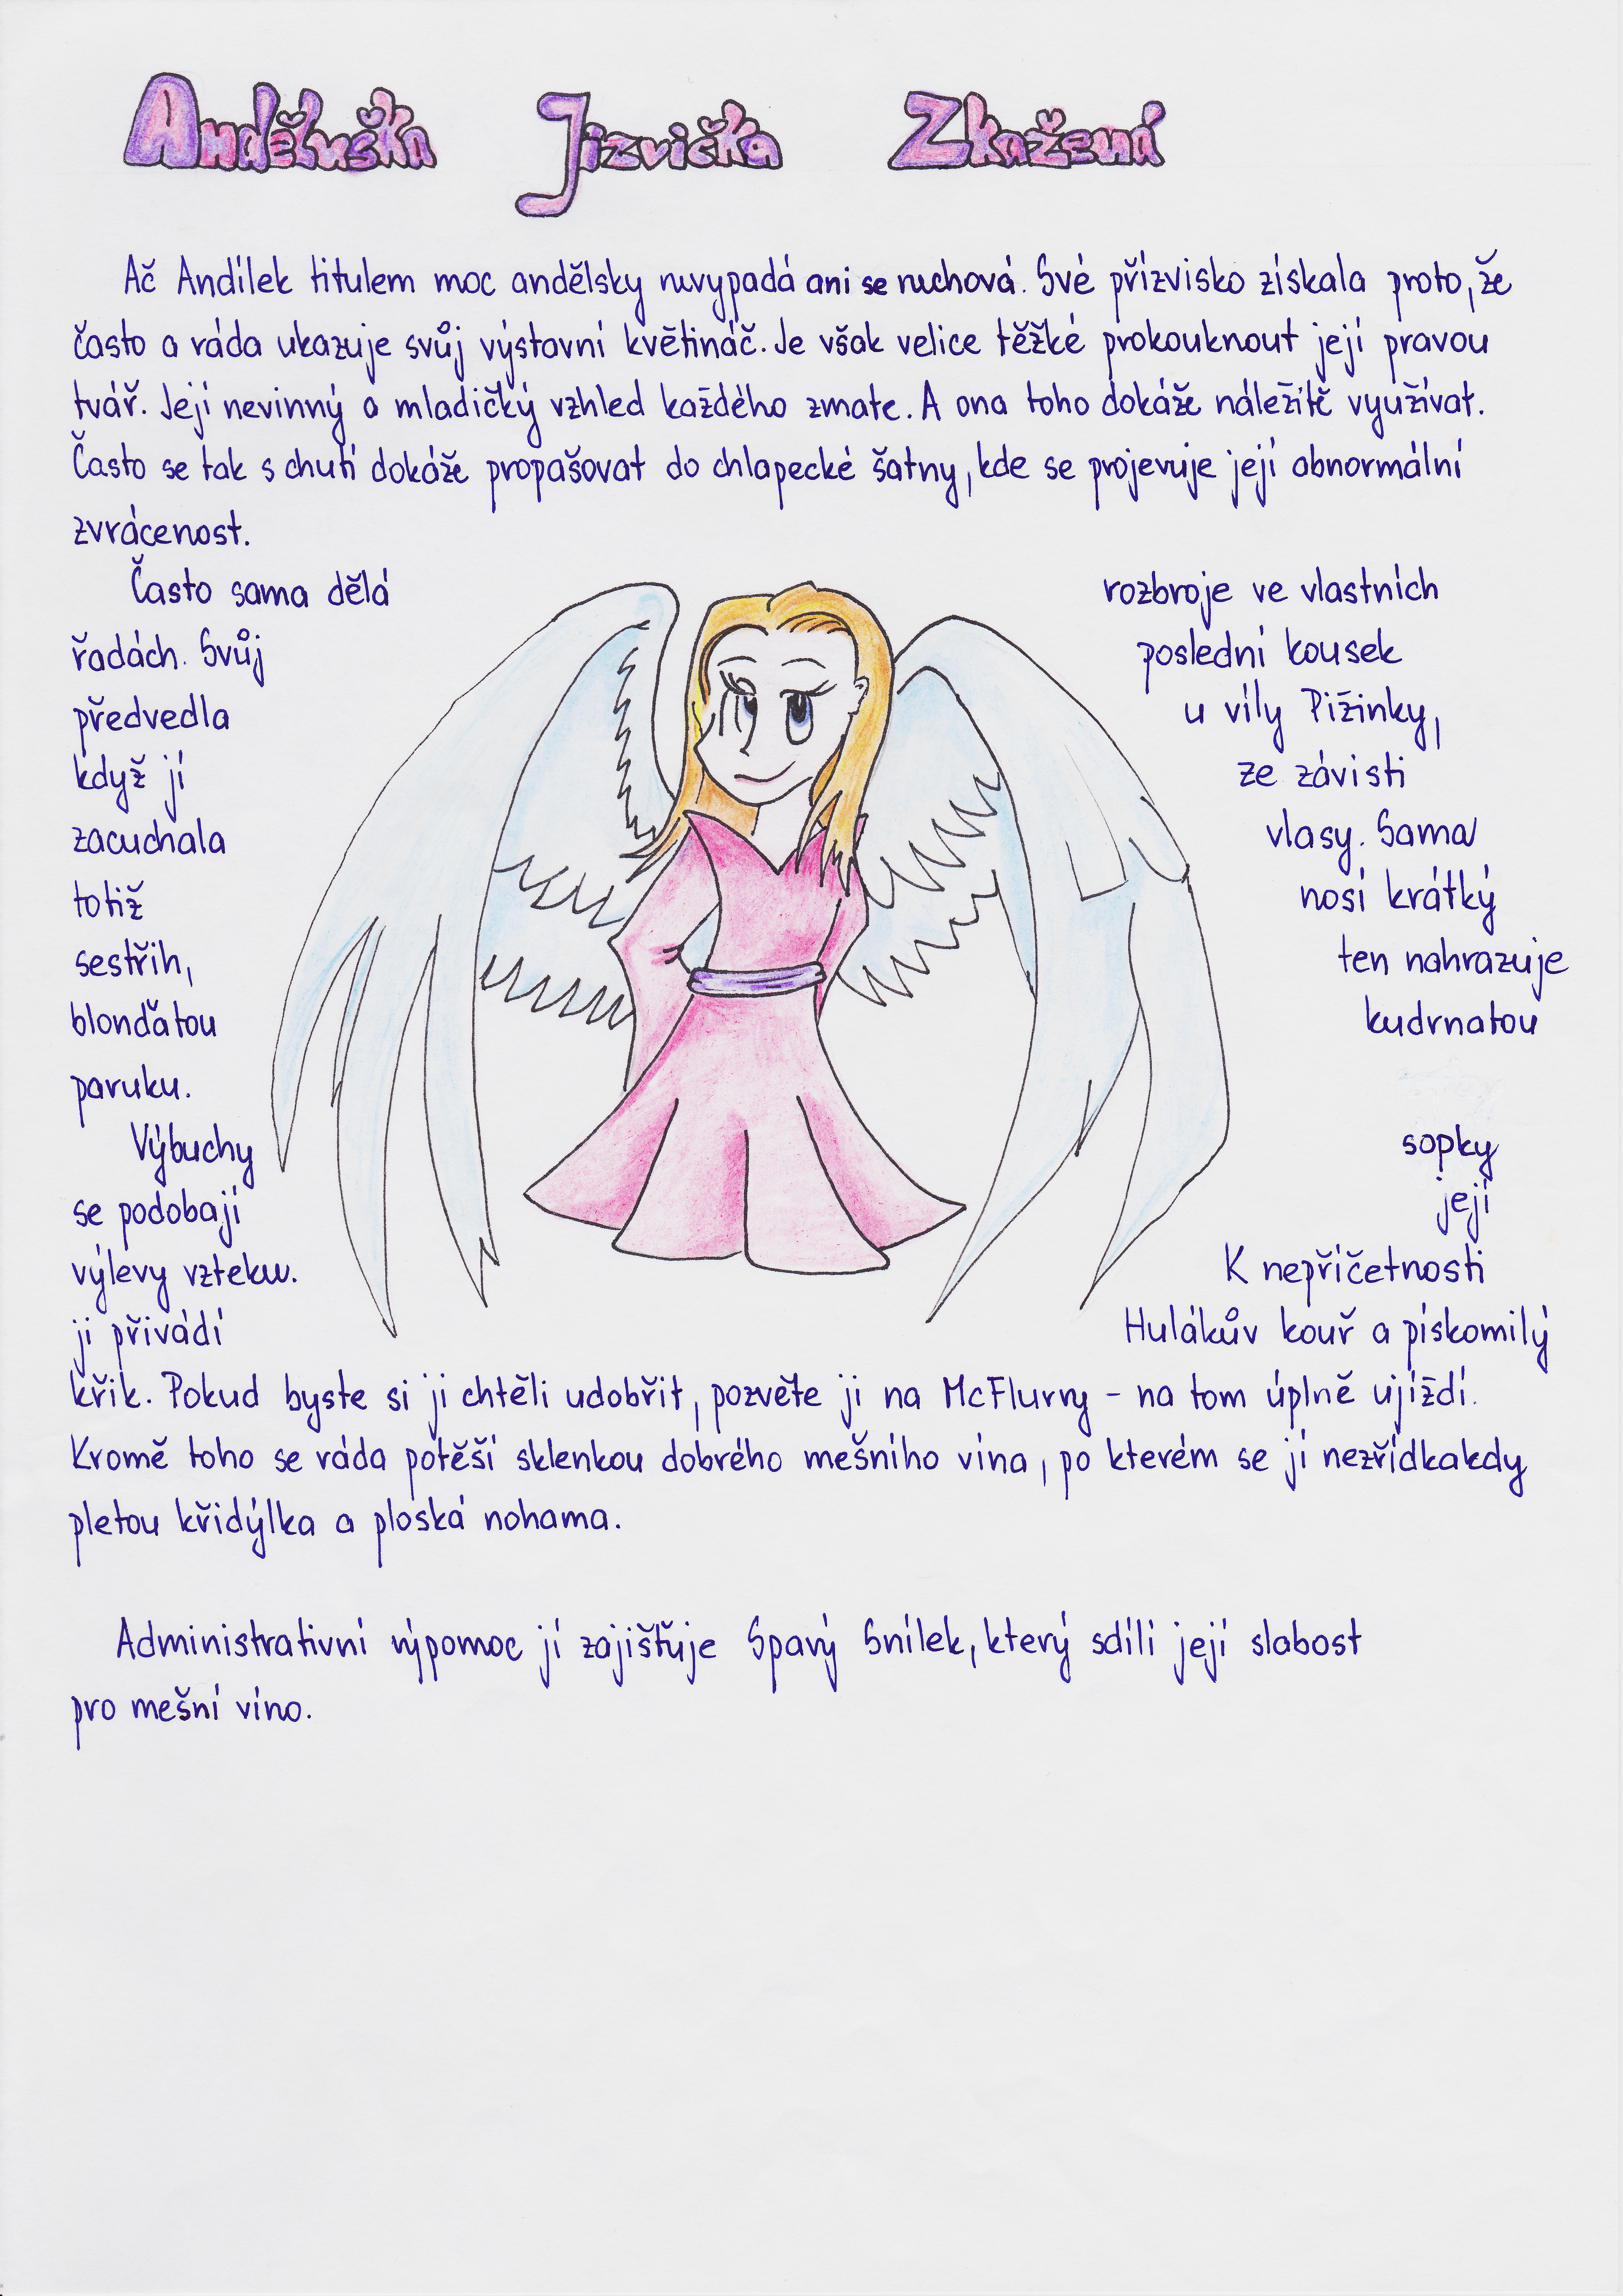 Anděluška Jizvička Zkažená
Ač Andílek titulem moc andělsky nevypadá ani se nechová. Své přízvisko získala proto, že
často a ráda ukazuje svůj výstavní květináč. Je však velice těžké prokouknout její pravou
tvář. Její nevinný a mladičký vzhled každého zmate. A ona toho dokáže náležitě využívat.
Často se tak s chutí dokáže propašovat do chlapecké šatny, kde se projevuje její abnormální
zvrácenost.
Často sama dělá rozbroje ve vlastních
řadách. Svůj poslední kousek
předvedla u víly Pižinky,
když jí ze závisti
zacuchala vlasy. Sama
totiž nosí krátký
sestřih, ten nahrazuje
blonďatou kudrnatou
paruku.
Výbuchy sopky
se podobají její
výlevy vzteku. K nepříčetnosti
ji přivádí Hulákův kouř a pískomilý
křik. Pokud byste si ji chtěli udobřit, pozvěte ji na McFlurry - na tom úplně ujíždí.
Kromě toho se ráda potěší sklenkou dobrého mešního vína, po kterém se jí nezřídkakdy
pletou křidýlka a ploská nohama.
Administrativní výpomoc jí zajišťuje Spavý Snílek, který sdílí její slabost
pro mešní víno.